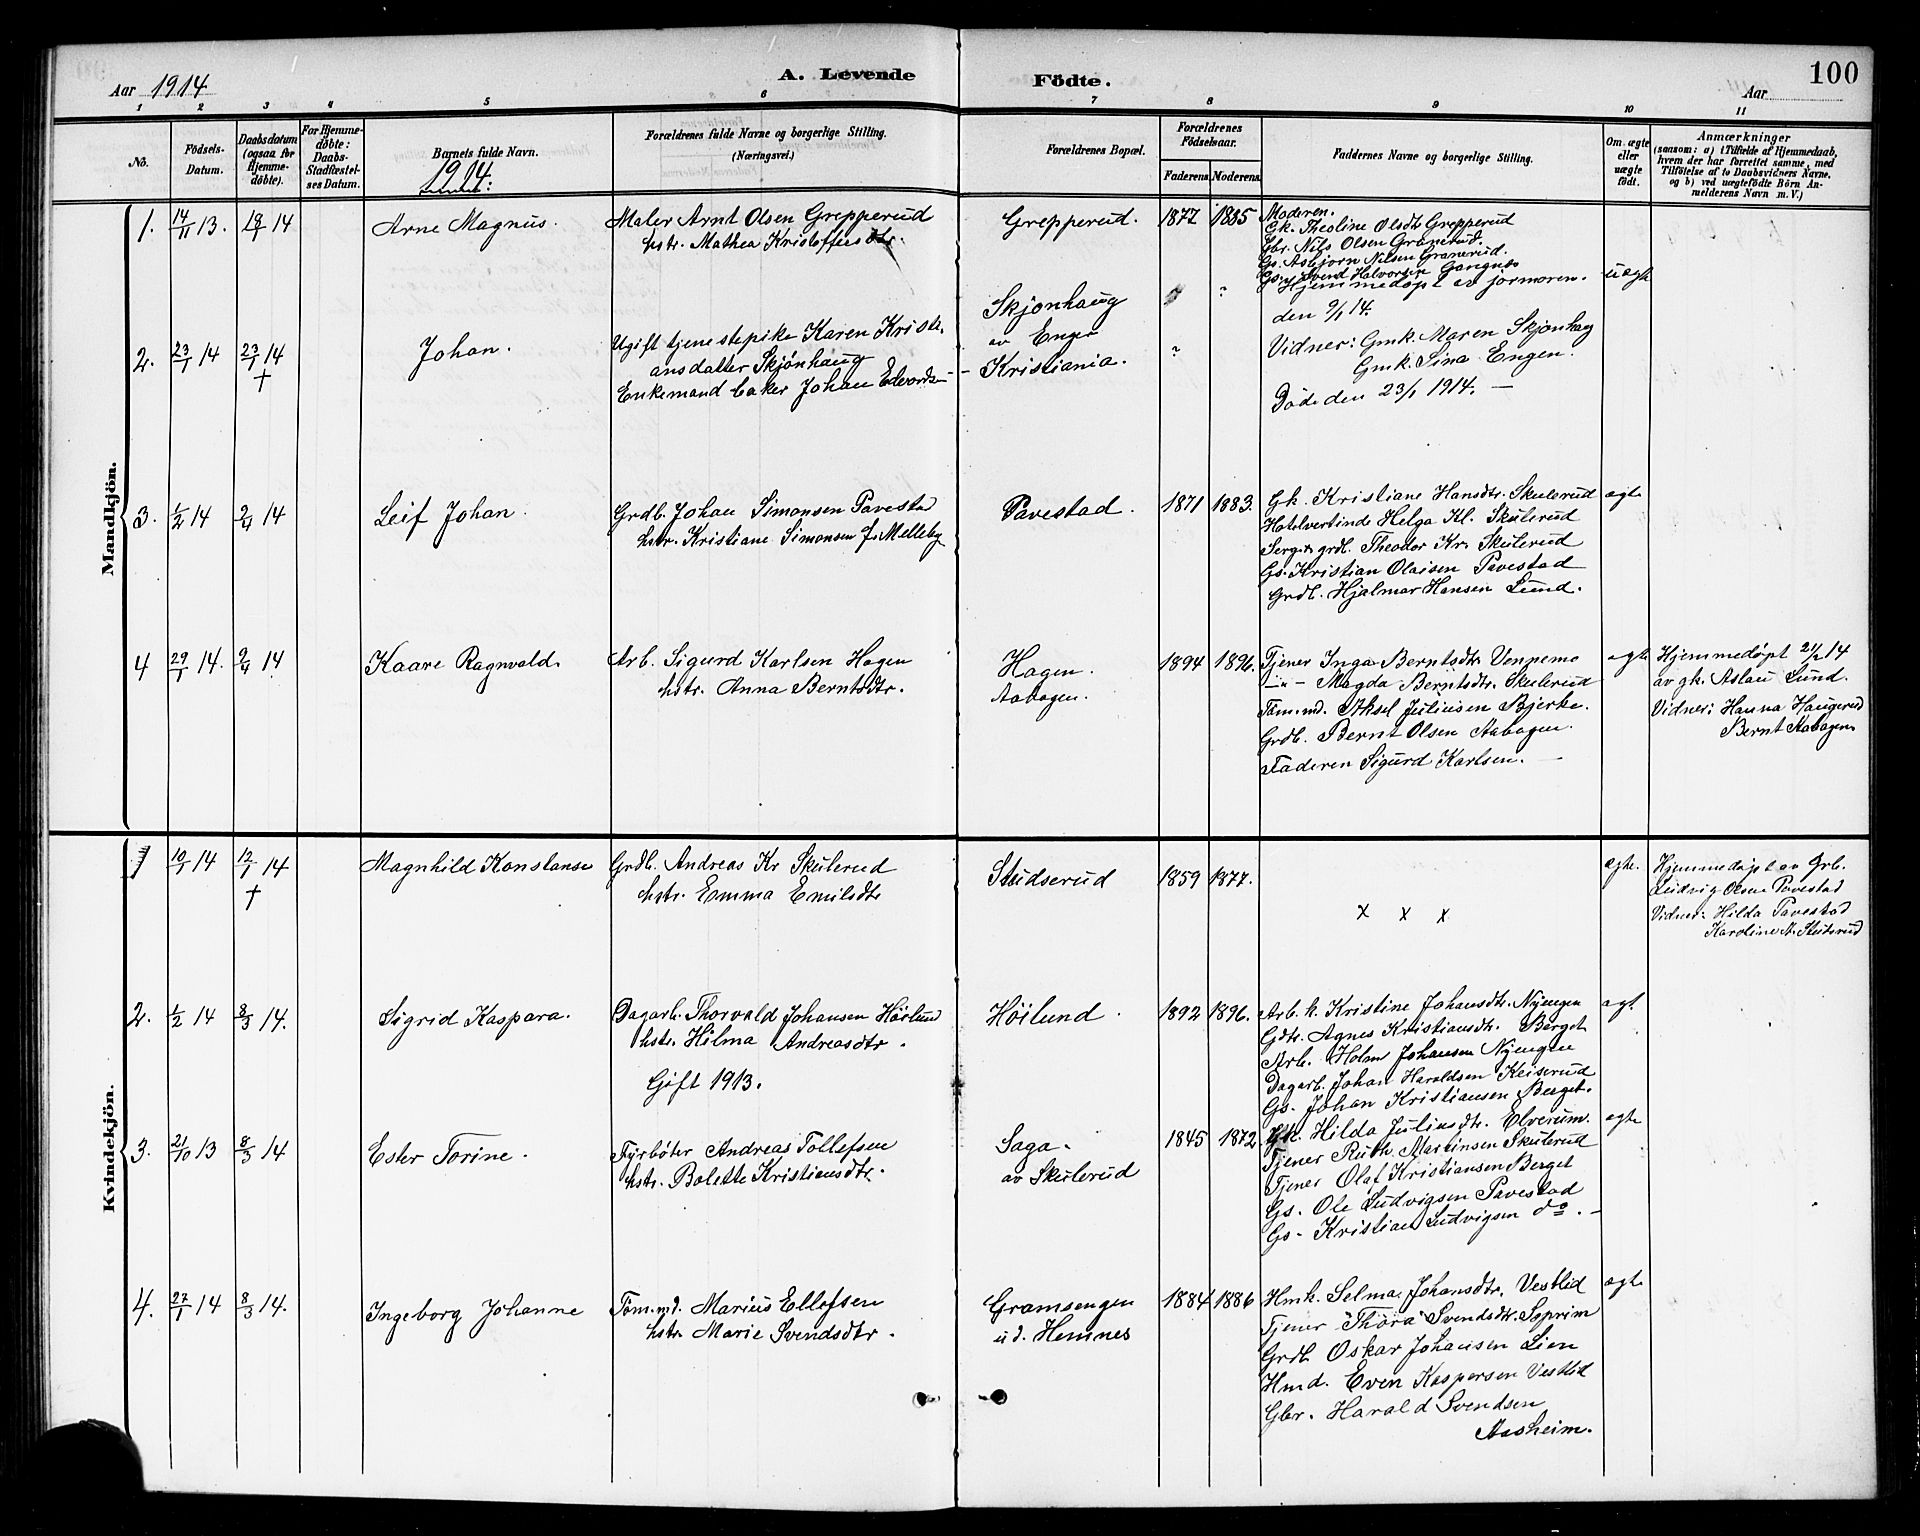 Aar 1914
A. Levende Födte.
100
Aar
1 2 3 4 5 6 7 8 9 10 11
No.
Födsels-
Datum.
Daabsdatum
(ogsaa for
Hjemme-
döbte).
For Hjemme-
döbte:
Daabs-
Stadfæstel-
ses Datum.
Barnets fulde Navn.
1914:
Forældrenes fulde Navne og borgerlige Stilling.
(Næringsvei.)
Forældrenes Bopæl.
Forældrenes
Födselsaar.
Faderens. Moderens.
Faddernes Navne og borgerlige Stilling.
Om ægte
eller
uægte
födt.
Anmærkninger
(saasom: a) i Tilfælde af Hjemmedaab,
hvem der har forrettet samme, med
Tilföielse af to Daabsvidners Navne,
og b) ved uægtefödte Börn An-
melderens Navn m. V.)
Mandkjön.
1. 14/11 13. 19/1 14
Arne Magnus.
Maler Arnt Olsen Grepperud
hstr. Mathea Kristoffersdtr.
Grepperud. 1877 1885
Moderen.
Gk. Theoline Olsdt Grepperud
Gbr. Nils Olsen Granerud.
Gs. Asbjørn Nilsen Granerud.
Gs. Svend Halvorsen Gangnæs
2. 23/1 14 23/1 14 †
Johan.
Ugift tjenestepike Karen Kristi-
ansdatter Skjønhaug
Enkemand baker Johan Edvards-
Skjønhaug
av Enger
- Kristiania.
? ?
Hjemmedøpt av jormoren.
den 9/1 14.
Vidner: Gmk. Maren Skjønhaug
Gmk. Lina Engen.
Døde den 23/1 1914. -
uægte
3. 1/2 14 2/4 14
Leif Johan.
Grdb. Johan Simonsen Pavestad
hstr. Kristiane Simonsen f. Melleby
Pavestad. 1871 1883.
Gk. Kristiane Hansdtr. Skulerud
Hotelvertinde Helga Kl. Skulerud
Serg. & grdb. Theodor Kr. Skulerud
Gs. Kristian Olaisen Pavestad
Grdb. Hjalmar Hansen Lund.
ægte
4 29/1 14. 9/4 14
Kaare Ragnvald.
Arb. Sigurd Karlsen Hagen
hstr. Anna Berntsdtr.
Hagen.
Aabogen.
1894 1896.
Tjener Inga Berntsdtr. Vennemo
-"- Magda Berntsdtr. Skulerud
Tøm.md. Aksel Juliusen Bjerke.
Grdb. Bernt Olsen Aabogen.
Faderen Sigurd Karlsen. -
ægte
Hjemmedøpt 21/2 14
av gk. Aslau Lund.
Vidner: Hanna Haugerud
Bernt Aabogen
Kvindekjön.
1 10/1 14 12/1 14 †
Magnhild Konstanse
Grdb. Andreas Kr Skulerud
hstr. Emma Emilsdtr
Studserud 1859 1877.
x x x
ægte.
Hjemmedøpt av Grb.
Ludvig Olsen Pavestad
Vidner: Hilda Pavestad
Karoline A. Stutsrud
2. 1/2 14 8/3 14.
Sigrid Kaspara.
Dagarb. Thorvald Johansen Høilund
hstr. Hilma Andreasdtr.
Gift 1913.
Høilund. 1892 1896.
Arb. k. Kristine Johansdtr. Nyengen
Gdtr. Agnes Kristiansdtr. Berget
Arb. Holm Johansen Nyengen
Dagarb. Johan Haraldsen Keiserud
Gs. Johan Kristiansen Berget.
ægt.
3. 21/10 13 8/3 14
Ester Torine.
Fyrbøter Andreas Tollefsen
hstr. Bolette Kristiansdtr.
Saga.
av Skulerud
1845 1872
Gk. Hilda Juliusdtr. Elverum.
Tjener Ruth Martinsen Skulerud
Tjener Olaf Kristiansen Berget
Gs. Ole Ludvigsen Pavestad
Gs. Kristian Ludvigsen do. -
ægte
4. 27/1 14 8/3 14.
Ingeborg Johanne
Tøm.md. Marius Ellefsen
hstr. Marie Svendsdtr.
Gramsengen
u.d. Hemnes
1884 1886
Hmk. Selma Johansdtr. Vestlid
Tjener Thora Svendsdtr. Soprim
Grdb Oskar Johansen Lien
Hmd. Even Kaspersen Vestlid
Gbr. Harald Svendsen
Aasheim.
ægte